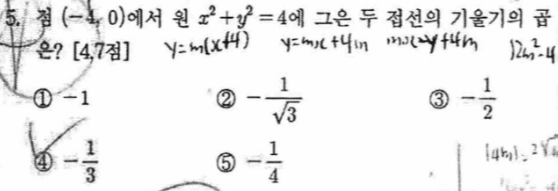 5. 점 (-4, 0)에서 원 x²+y²=4에 그은 두 접선의 기울기의 곱
은? [4.7점] y=m(x+4) y=mx+4m mx-y+4m 12m²-4
① -1 ② -1/√3 ③ -1/2
④ -1/3 ⑤ -1/4
|4m|=2√